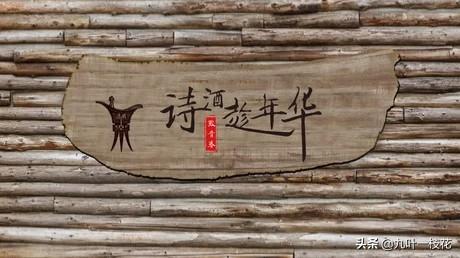 诗酒趁年华
敬青春
头条@九叶一枝花